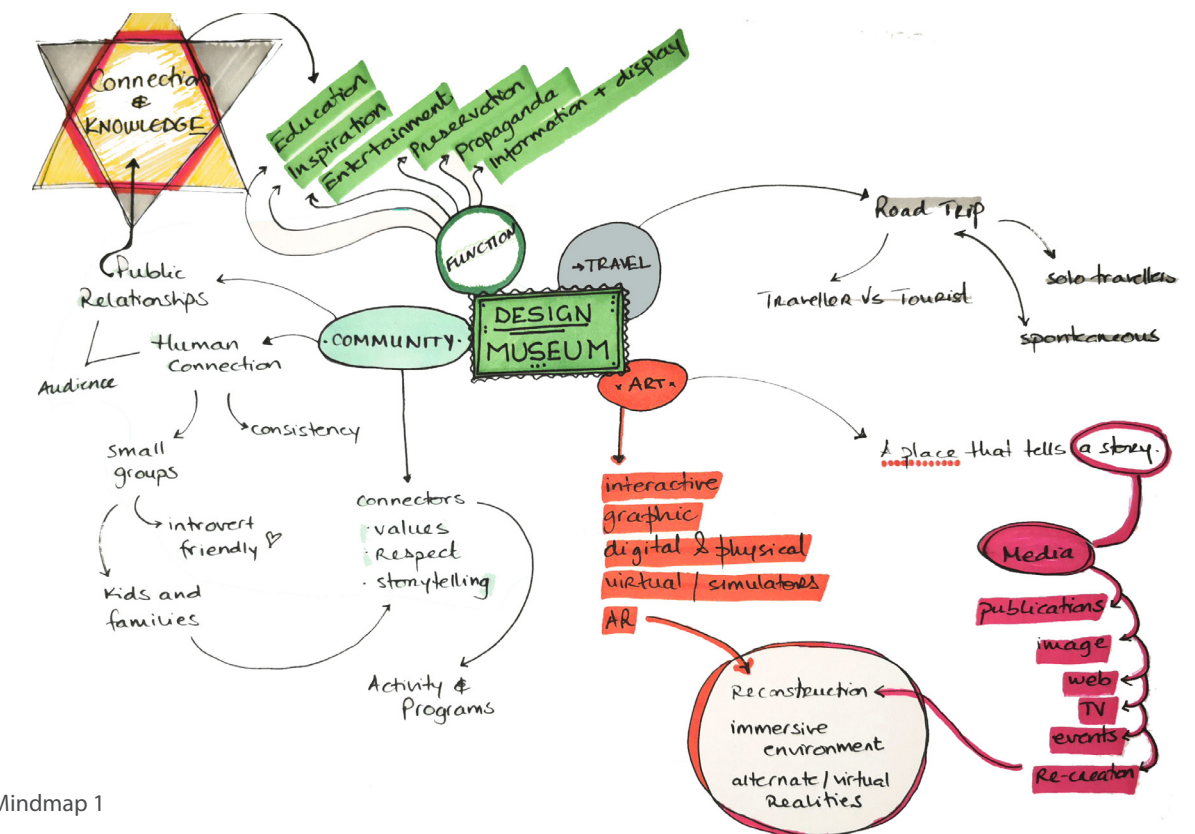 Connection
&
KNOWLEDGE
Education
Inspiration
Entertainment
Preservation
Propaganda
Information + display
FUNCTION
→TRAVEL
Road Trip
solo travellers
Traveller Vs Tourist
spontaneous
Public
Relationships
Human
Connection
Audience
·COMMUNITY·
DESIGN
MUSEUM
× ART ×
small
groups
consistency
introvert
friendly ♡
Kids and
families
connectors
· values
· Respect
· storytelling
Activity &
Programs
interactive
graphic
digital & physical
virtual / simulators
AR
A place that tells a story.
Media
publications
image
web
TV
events
Re-creation
Reconstruction
immersive
environment
alternate / virtual
Realities
Mindmap 1